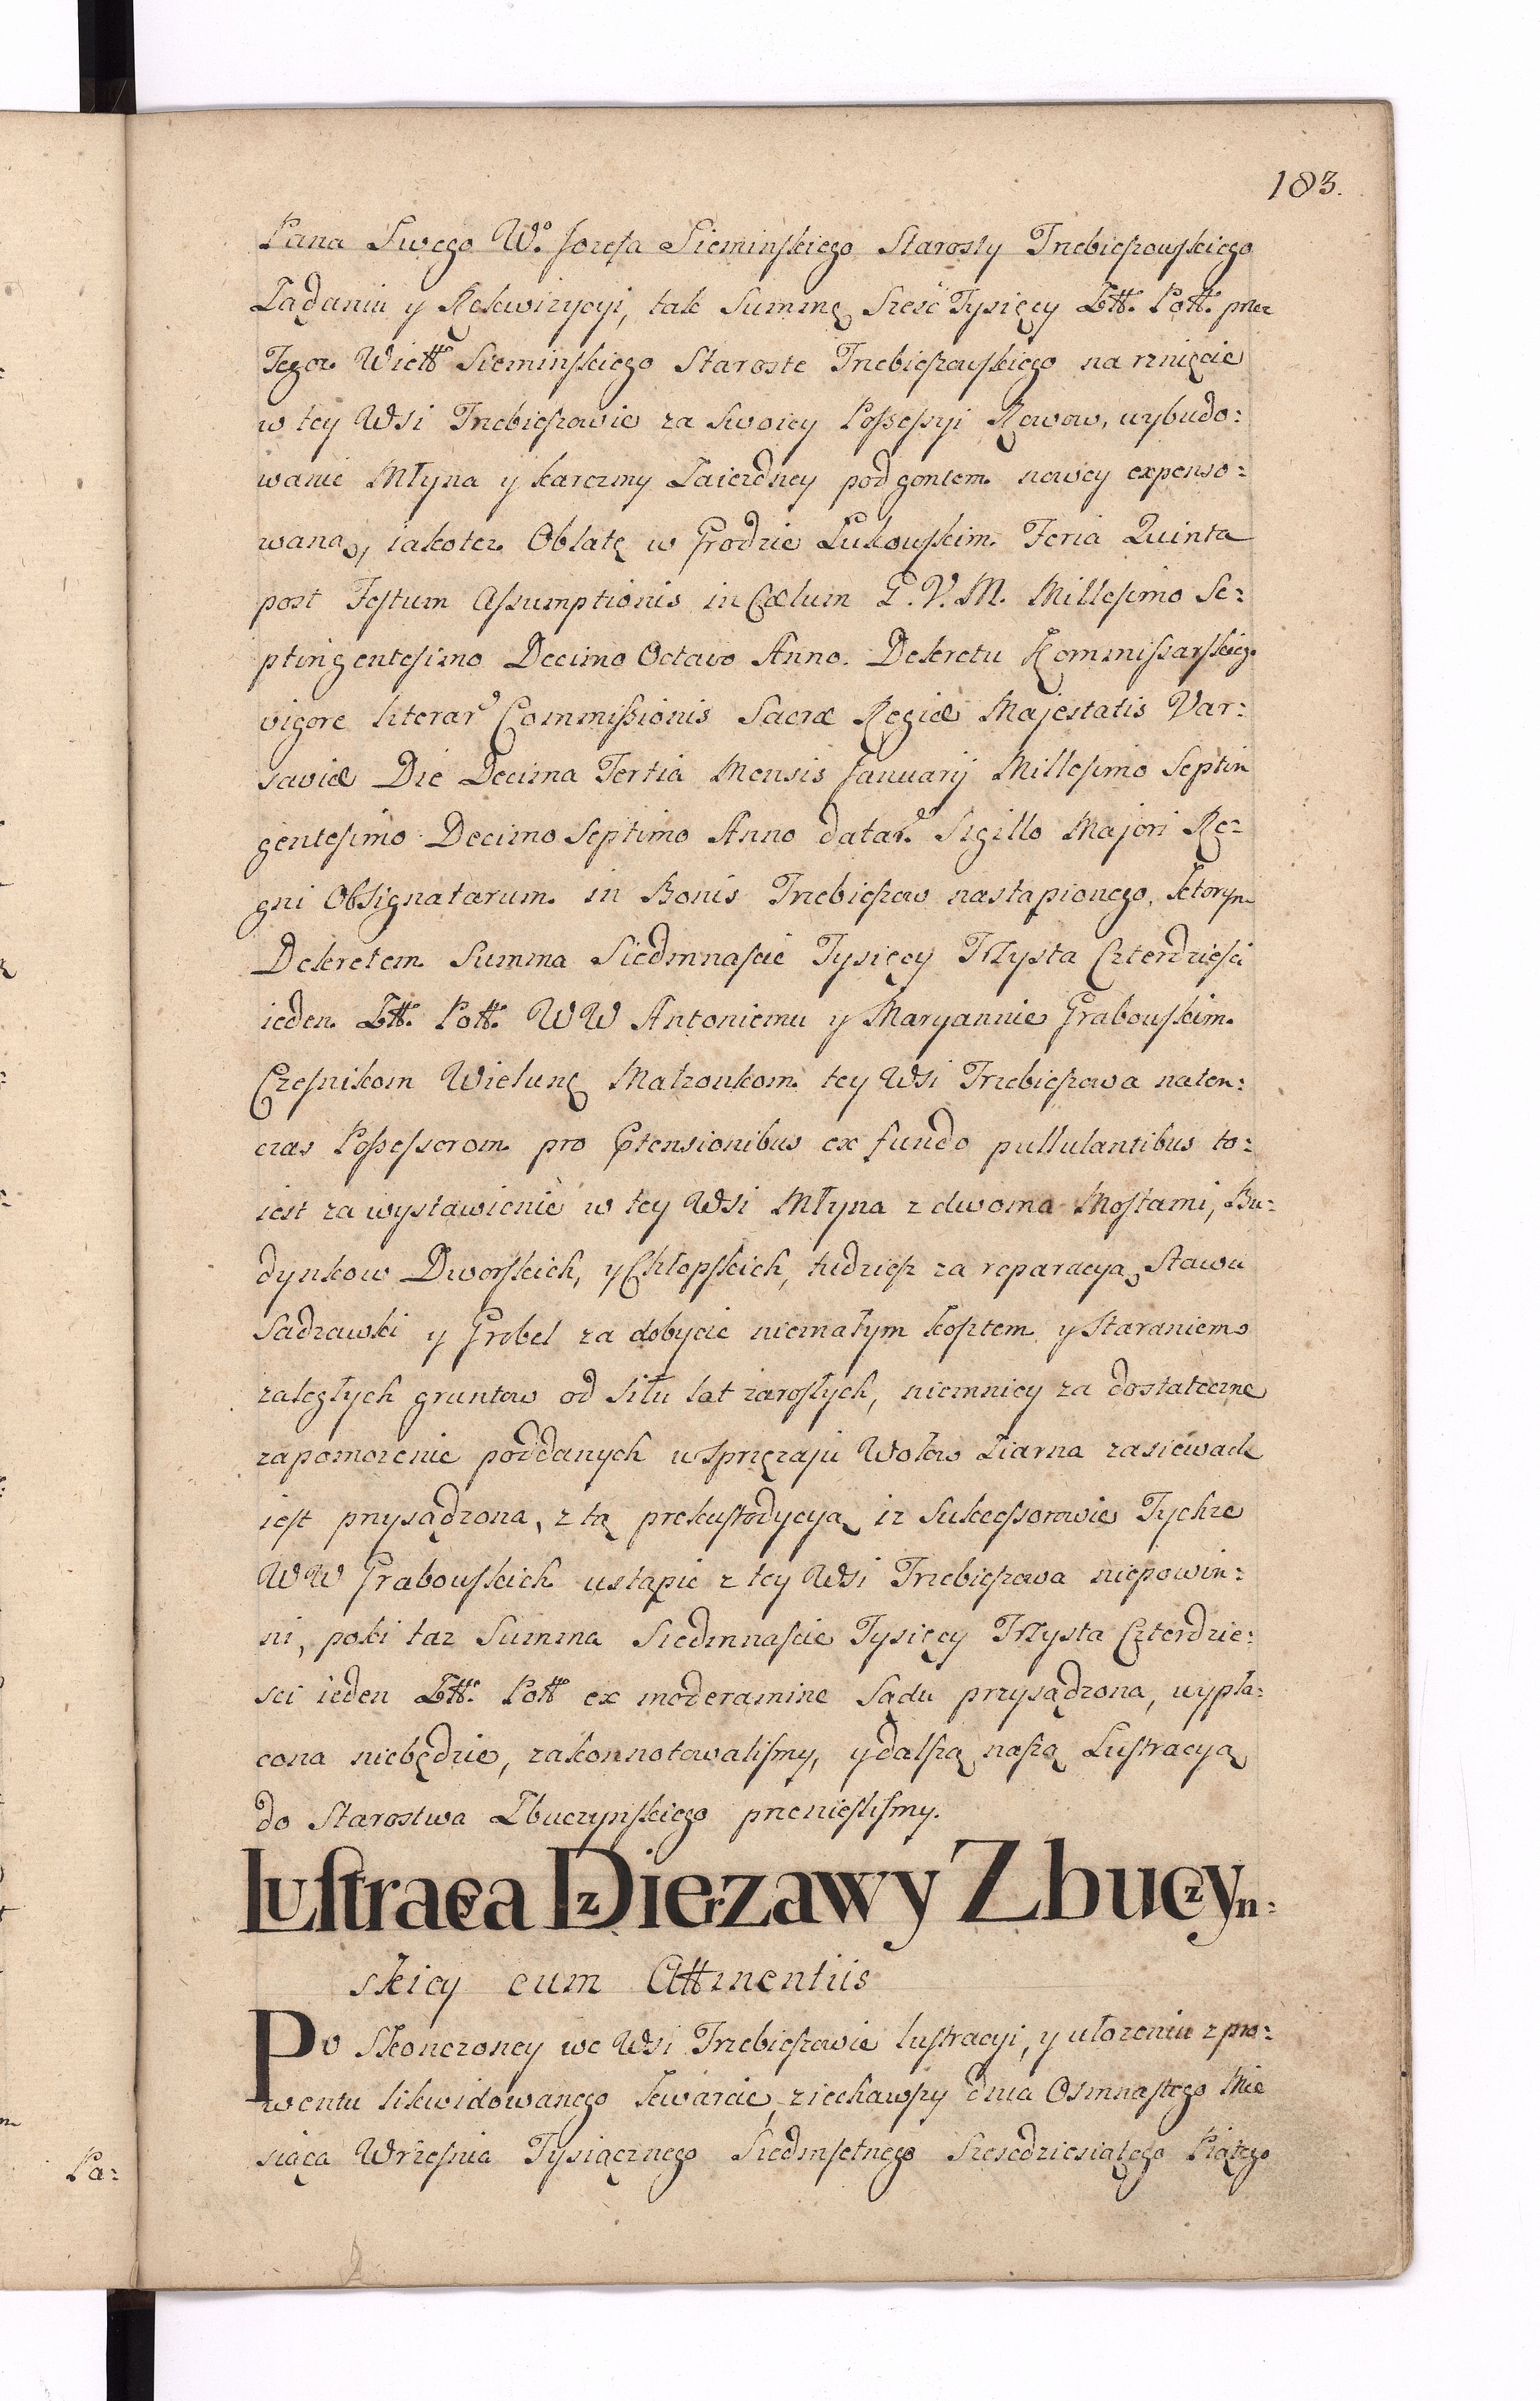 183.
Pana Swego Wo. Jozefa Sieminskiego Starosty Trzebieszowskiego
Żądaniu y Rekwizycyi, tak Summę Sześć Tysięcy Złł. Poll. przez
Tegoz Wielł Sieminskiego Staroste Trzebieszowskiego na rznięcie
w tey Wsi Trzebieszowie za Swoiey Possessyi Rowow, wybudo:
wanie Młyna y karczmy Zaiezdney pod gontem nowey expenso:
waną, iakotez Oblatę w Grodzie Łukowskim Feria Quinta
post Festum Assumptionis in Cælum B. V. M. Millesimo Se:
ptingentesimo Decimo Octavo Anno. Dekretu Kommissarskiego
vigore literar Commissionis Sacræ Regiæ Majestatis Var:
saviæ Die Decima Tertia Mensis Januarij Millesimo Septin
gentesimo Decimo Septimo Anno datar. Sigillo Majori Re:
gni Obsignatarum in Bonis Trzebieszow nastąpionego, ktorym
Dekretem Summa Siedmnaście Tysięcy Trzysta Czterdzieści
ieden Złł. Poll. WW Antoniemu y Maryannie Grabowskim
Czesnikom Wielunę Małzonkom tey Wsi Trzebieszowa naten:
czas Possessorom pro Ptensionibus ex fundo pullulantibus to:
iest za wystawienie w tey Wsi Młyna z dwoma Mostami, Bu:
dynkow Dworskich, y Chłopskich, tudziesz za reparacyą Stawu
Sadzawki y Grobel za dobycie niemałym kosztem y Staraniem
zaległych gruntow od siłu lat zarosłych, niemniey za dostateczne
zapomozenie poddanych w Sprzęzaju Wołow Ziarna zasiewach
iest przysądzona, z tą prekustodycyą iz Sukcessorowie Tychze
WW Grabowskich ustąpic z tey Wsi Trzebieszowa niepowin:
ni, poki taz Summa Siedmnaście Tysięcy Trzysta Czterdzie:
sci ieden Złł. Poll ex moderamine Sądu przysądzona, wypła:
cona niebędzie, zakonnotowaliśmy, y dalszą naszą Lustracyą
do Starostwa Zbuczynskiego przenieśliśmy.
Lustracya Dzierzawy Zbuczyn:
skiey cum Attinentiis
Po Skonczoney we Wsi Trzebieszowie lustracyi, y ułozeniu z pro:
wentu likwidowanego kwarcie, ziechawszy dnia Osmnastego Mie
siąca Września Tysiącznego Siedmsetnego Szescdziesiątego Piątego
Pa: